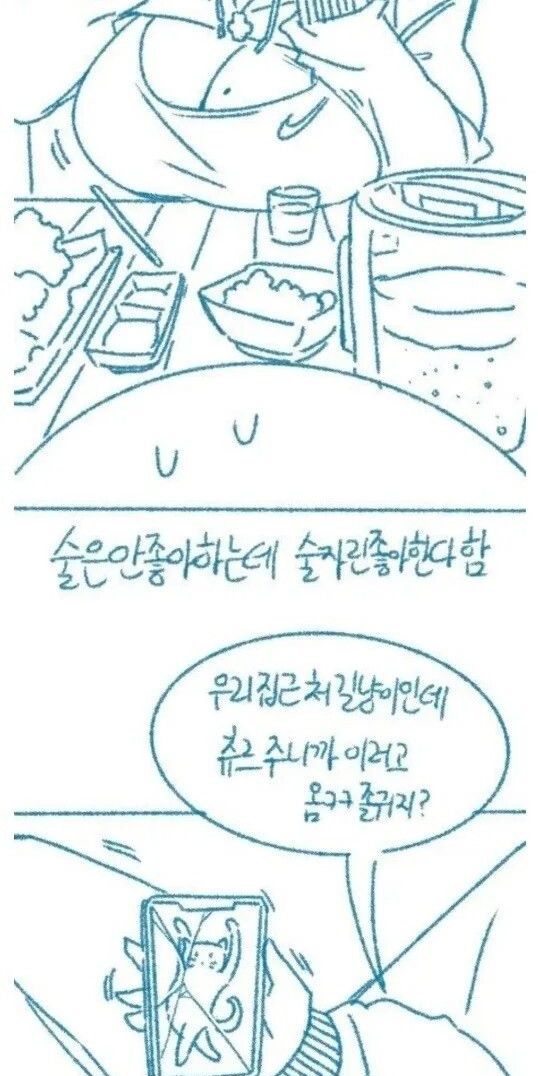 술은안좋아하는데 술자린좋아한다 함
우리집근처길냥이인데
츄르 주니까 이러고
옴구구 졸귀지?